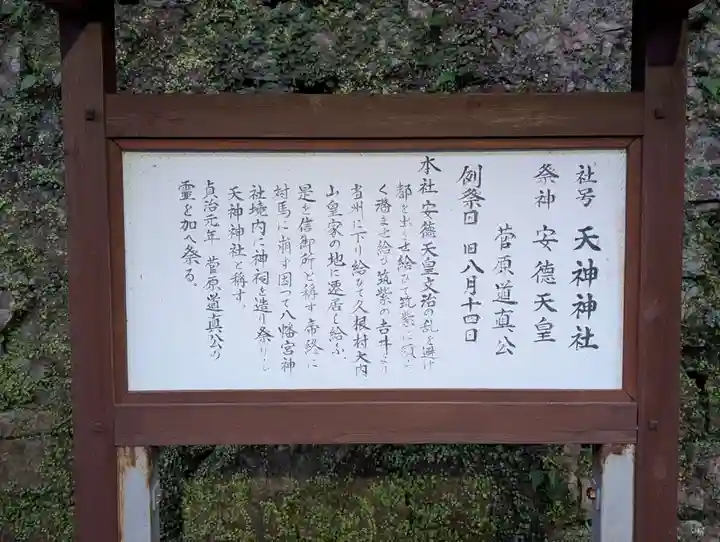 社号 天神神社
祭神 安德天皇
菅原道真公
例祭日 旧八月十四日
本社 安德天皇文治の乱を避け
都を出させ給ひて筑紫に
く潜ませ給ひ筑紫の吉井より
當州に下り給ひて久根村大内
山皇家の地に遷居し給ふ
是を信御所と稱す帝終に
対馬に崩す因つて八幡宮神
社境内に神祠を造り祭りし
天神神社と稱す。
貞治元年 菅原道真公の
靈を加へ祭る。